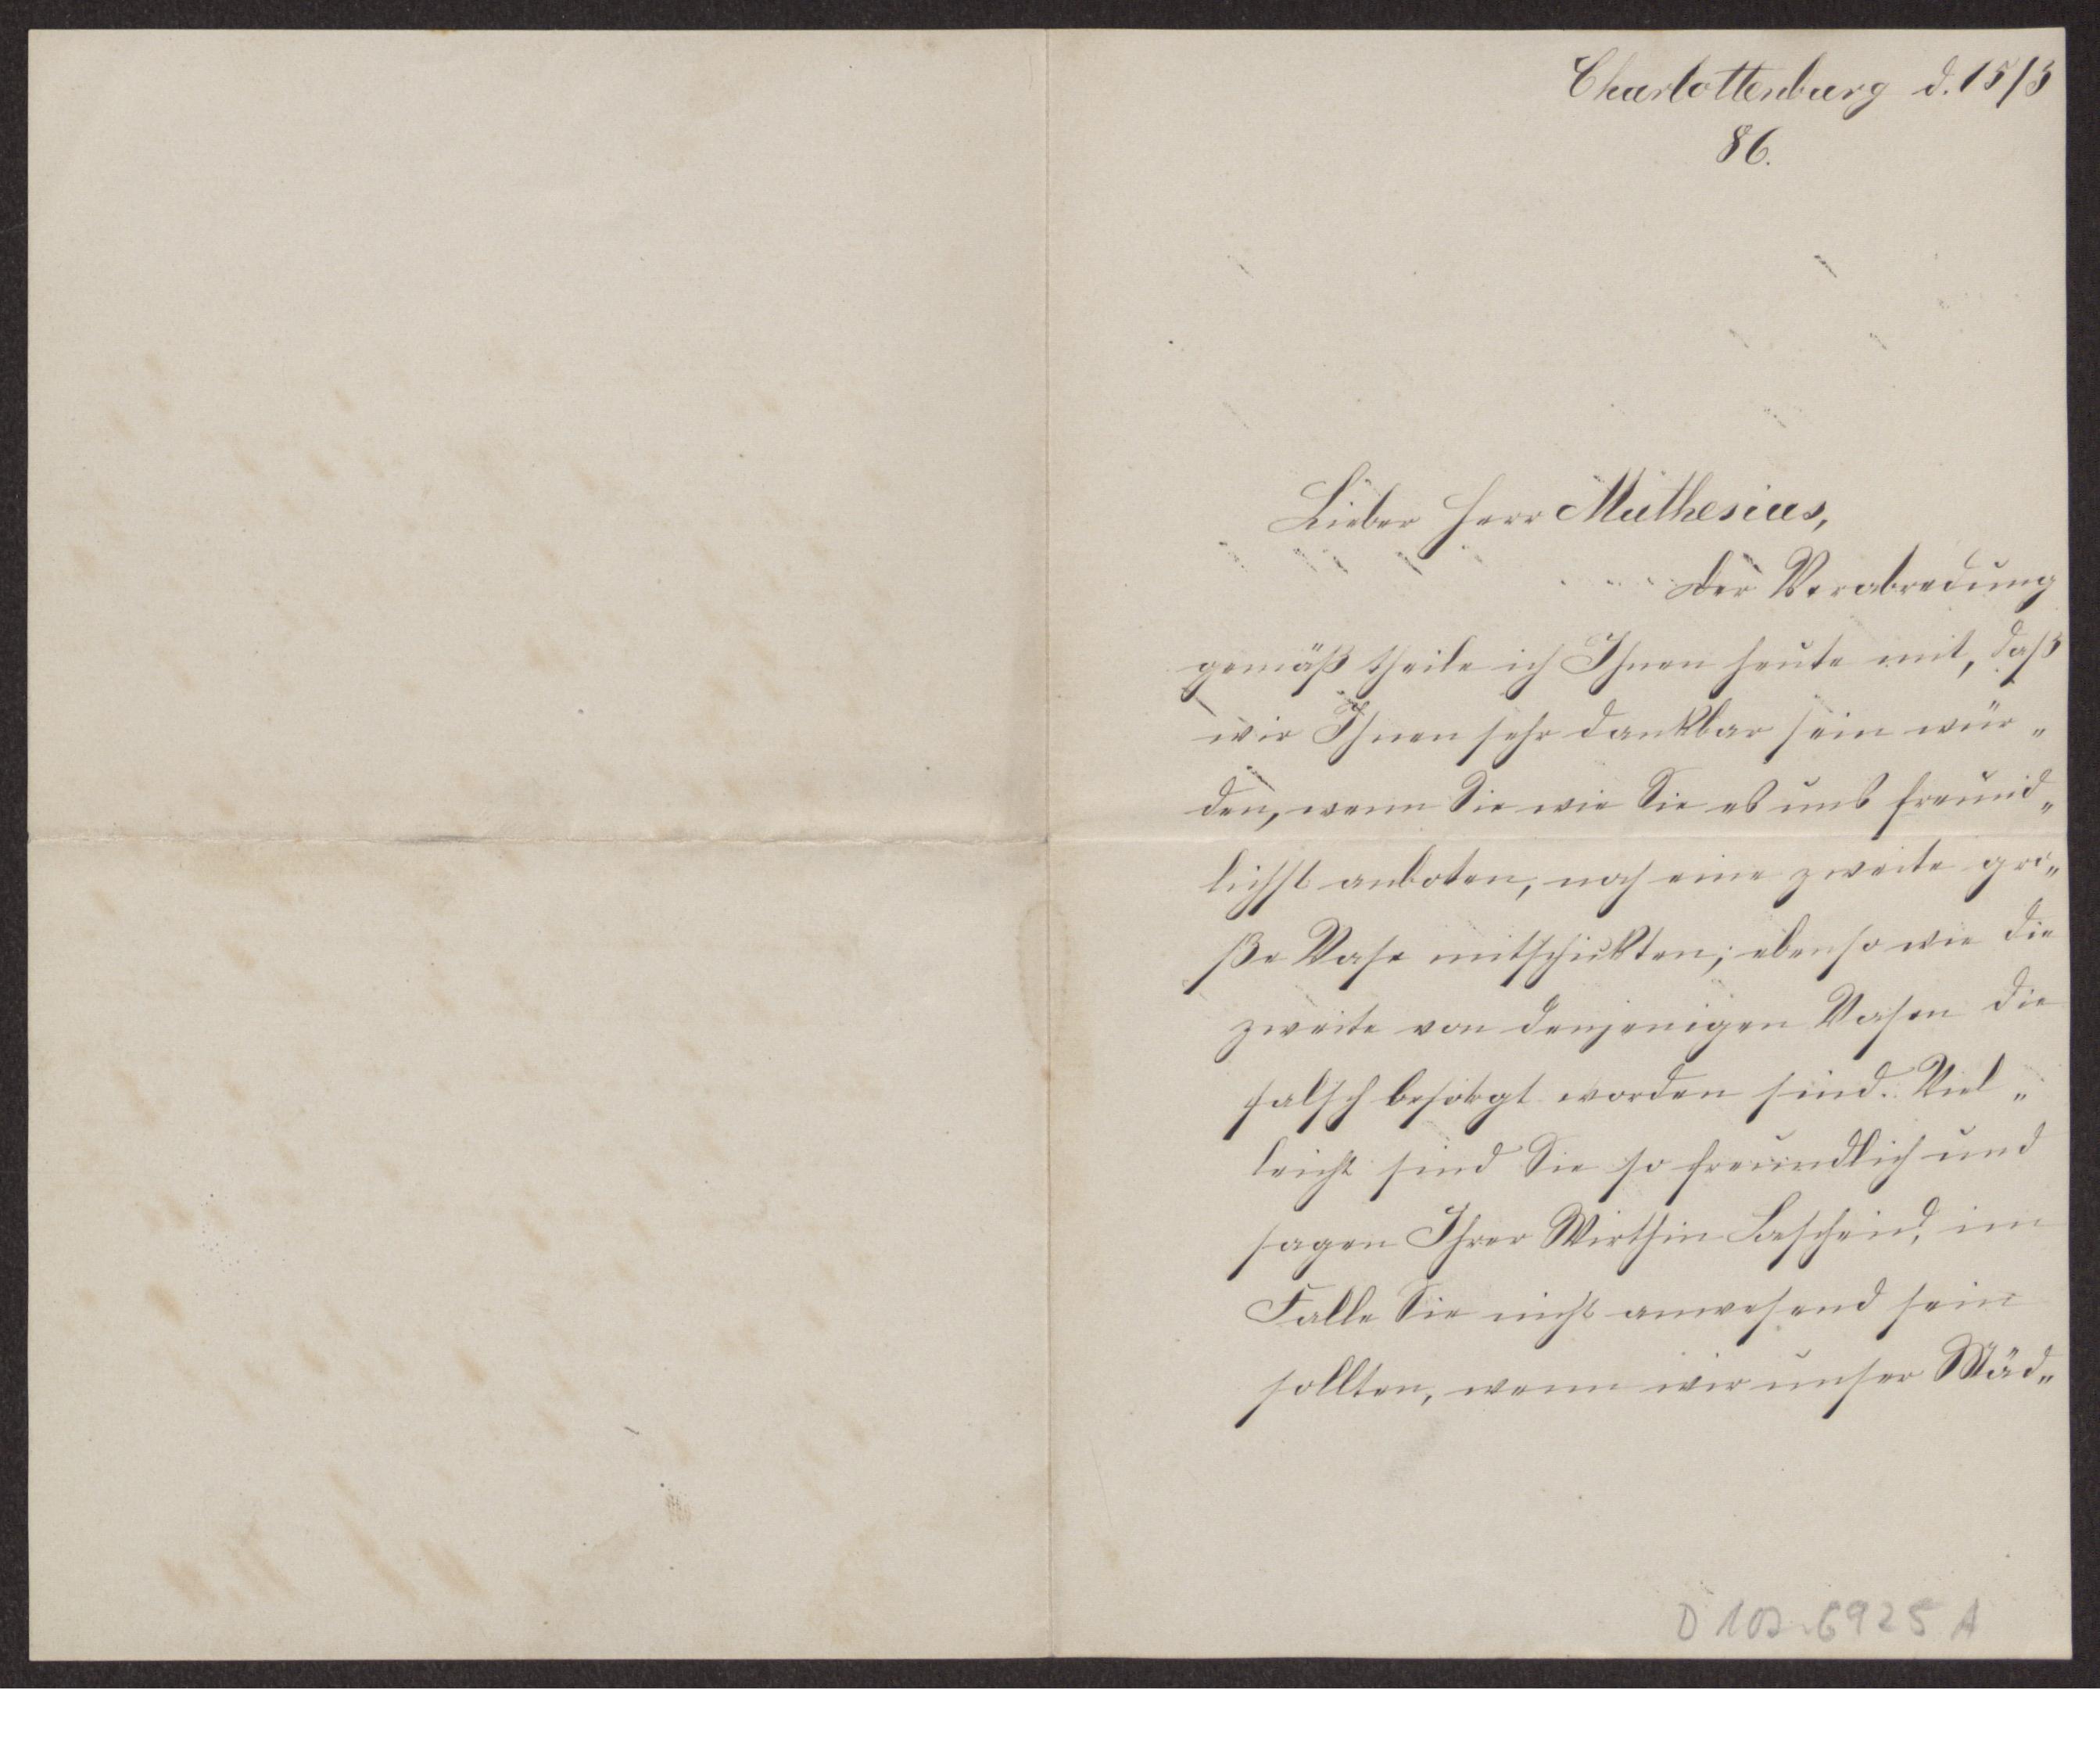 Charlottenburg d. 15/3
86.
Lieber Herr Muthesius,
Der Verabredung
gemäß theile ich Ihnen heute mit, daß
wir Ihnen sehr dankbar sein wür„
den, wenn Sie wie Sie es uns freund„
lichst anboten, noch eine zweite gro„
ße Vase mitschickten; ebenso wie die
zweite von denjenigen Vasen die
falsch besorgt worden sind. Viel„
leicht sind Sie so freundlich und
sagen Ihrer Wirthin Bescheid, im
Falle Sie nicht anwesend sein
sollten, wenn wir unser Mäd„
D 102-6925 A